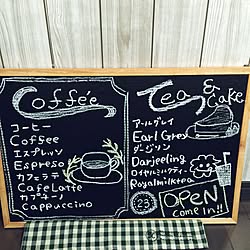 Coffée
コーヒー
Coffee
エスプレッソ
Espresso
カフェラテ
CafeLatte
カプチーノ
Cappuccino
Tea & Cake
アールグレイ
Earl Grey
ダージリン
Darjeeling
ロイヤルミルクティー
Royalmilktea
23
OPEN
Come in!!